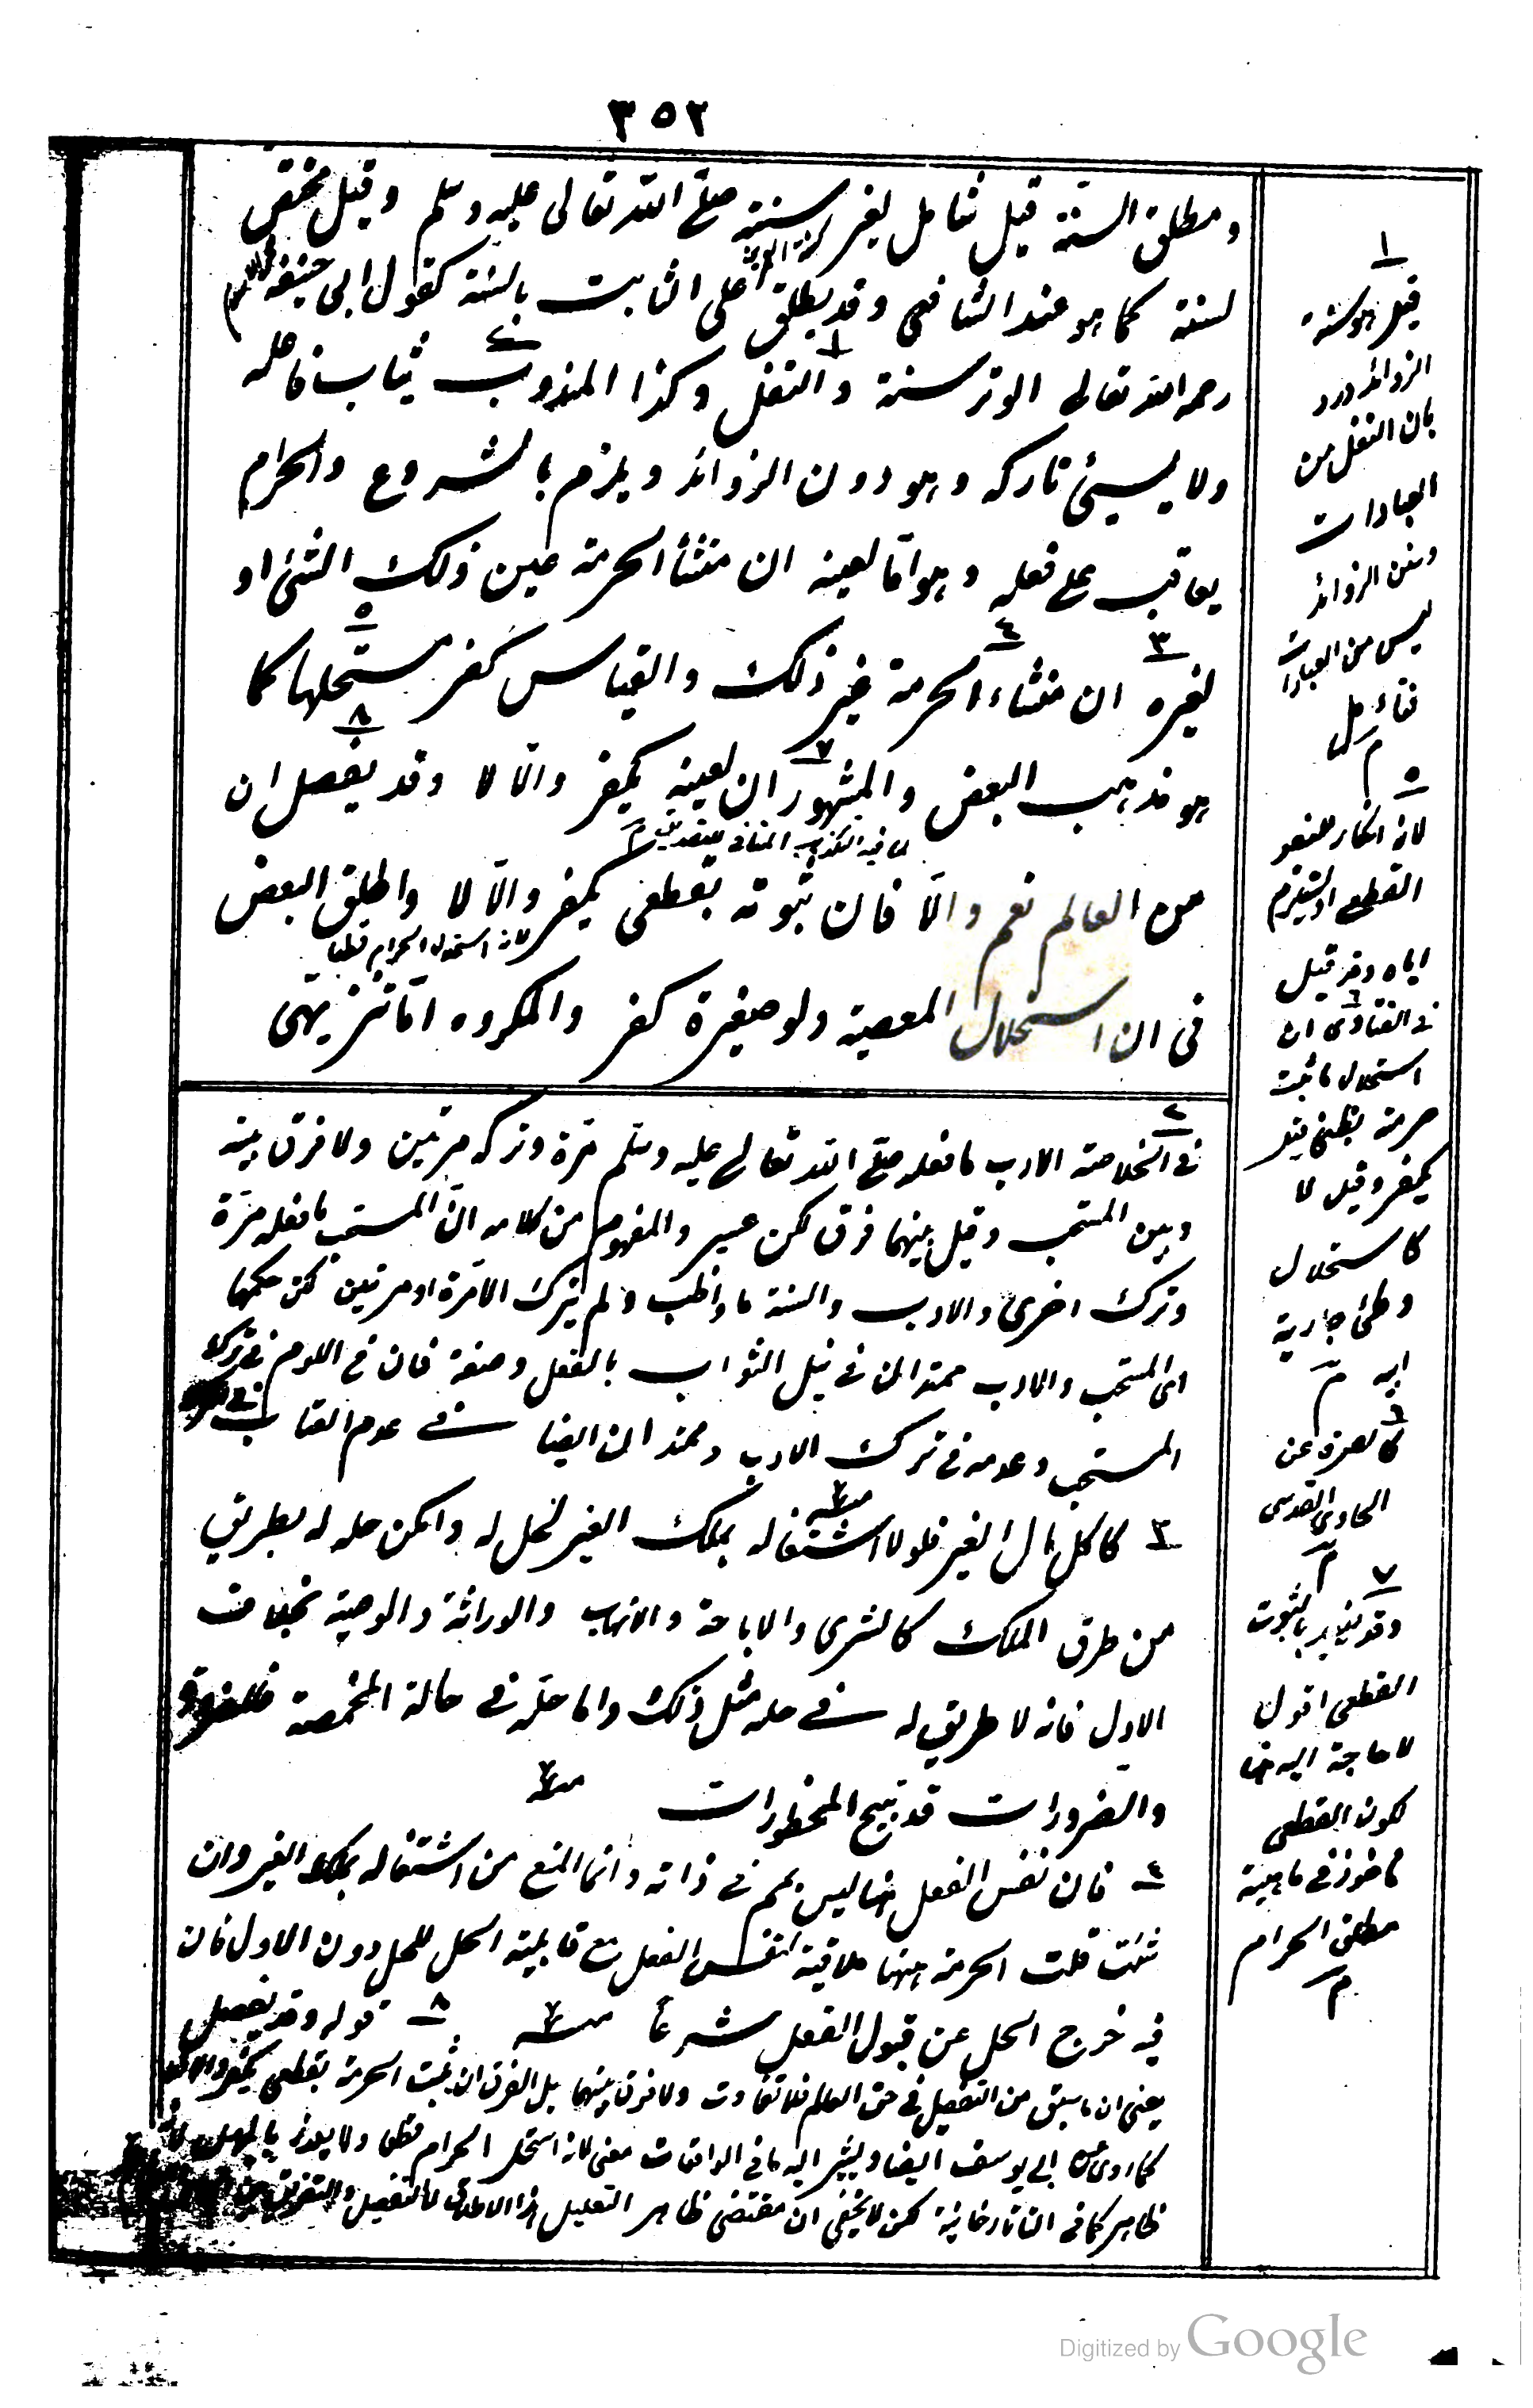 ٣٥٢
ومطلق السنة قيل شامل لغير سنته صلى الله تعالى عليه وسلم وقيل مختص
لسنته كما هو عند الشافعي وقد يطلق على الثابت بالسنة كقول ابى حنيفة
رحمه الله تعالى الوتر سنة والنفل وكذا المندوب يثاب فاعله
ولا يسيئ تاركه وهو دون الزوائد ويلزم بالشروع والحرام
يعاقب على فعله وهو امّا لعينه ان منشأ الحرمة عين ذلك الشئ او
لغيره ان منشاء الحرمة غير ذلك والقياس كفر مستحلها كما
هو مذهب البعض والمشهور ان لعينه يكفر والّا لا وقد يفصل ان
لما فيه التكذيب المنافى للتصديق
من العالم نعم والّا فان ثبوته بقطعى يكفر والّا لا واطلق البعض
لانه استحل الحرام قطعا
فى ان استحلال المعصية ولو صغيرة كفر والمكروه امّا تنزيهى
٢
فى الخلاصة الادب ما فعله صلى الله تعالى عليه وسلم مرّة وتركه مرتين ولا فرق بينه
وبين المستحب وقيل بينهما فرق لكن عسير والمفهوم من كلامه انّ المستحب ما فعله مرّة
وترك اخرى والادب والسنة ما واظب ولم يترك الا مرّة او مرتين لكن حكمها
اى المستحب والادب متحدان فى نيل الثواب بالفعل وصنعة فان فى اللوم فى ترك
المستحب وعدمه فى ترك الادب ومتحدان ايضا فى عدم العتاب
٣ كاكل مال الغير فلولا اشتغاله بملك الغير لحل له وامكن حله له بطريق
من طرق الملك كالشرى والاباحة والاتهاب والوراثة والوصية بخلاف
الاول فانه لا طريق له فى حله مثل ذلك واما حله فى حالة المخمصة فللضرورة
والضرورات قد تبيح المحظورات
٤ فان نفس الفعل هنا ليس بمحرم فى ذاته وانما المنع من اشتغاله بملك الغير وان
شئت قلت الحرمة ههنا ملاقية لنفس الفعل مع قابلية المحل للحل دون الاول فان
فيه خرج المحل عن قبول الفعل شرعاً ٨ قوله وقد يفصل
يعنى ان ما سبق من التفصيل فى حق العالم فلا تفاوت ولا فرق بينهما بل الفرق ان ثبت الحرمة بقطعى يكفر والا لا
كما روى عن ابى يوسف ايضا ويشير اليه ما فى الواقعات معنى لانه استحل الحرام قطعا ولا يعذر بالجهل
ظاهر كما فى التاتارخانية لكن لا يخفى ان مقتضى ظاهر التعليل هو الاطلاق لا التفصيل والتفريق
١
قيل هو سنة
الزوائد ورد
بان النفل من
العبادات
وسنن الزوائد
ليس من العبادات
فتأمل
م
٥
لانه انكار للنص
القطعى او يستلزم
اياه وقد قيل
فى الفتاوى ان
استحلال ما ثبت
حرمته بظنى
يكفر وقيل لا
كاستحلال
وطئ جارية
ابيه م
٦
كالمعزو عن
الحاوى القدسى
م
٧
وقد يقيد بالثبوت
القطعى اقول
لا حاجة اليه هنا
لكون القطعى
مأخوذ فى ماهية
مطلق الحرام
م
Digitized by Google